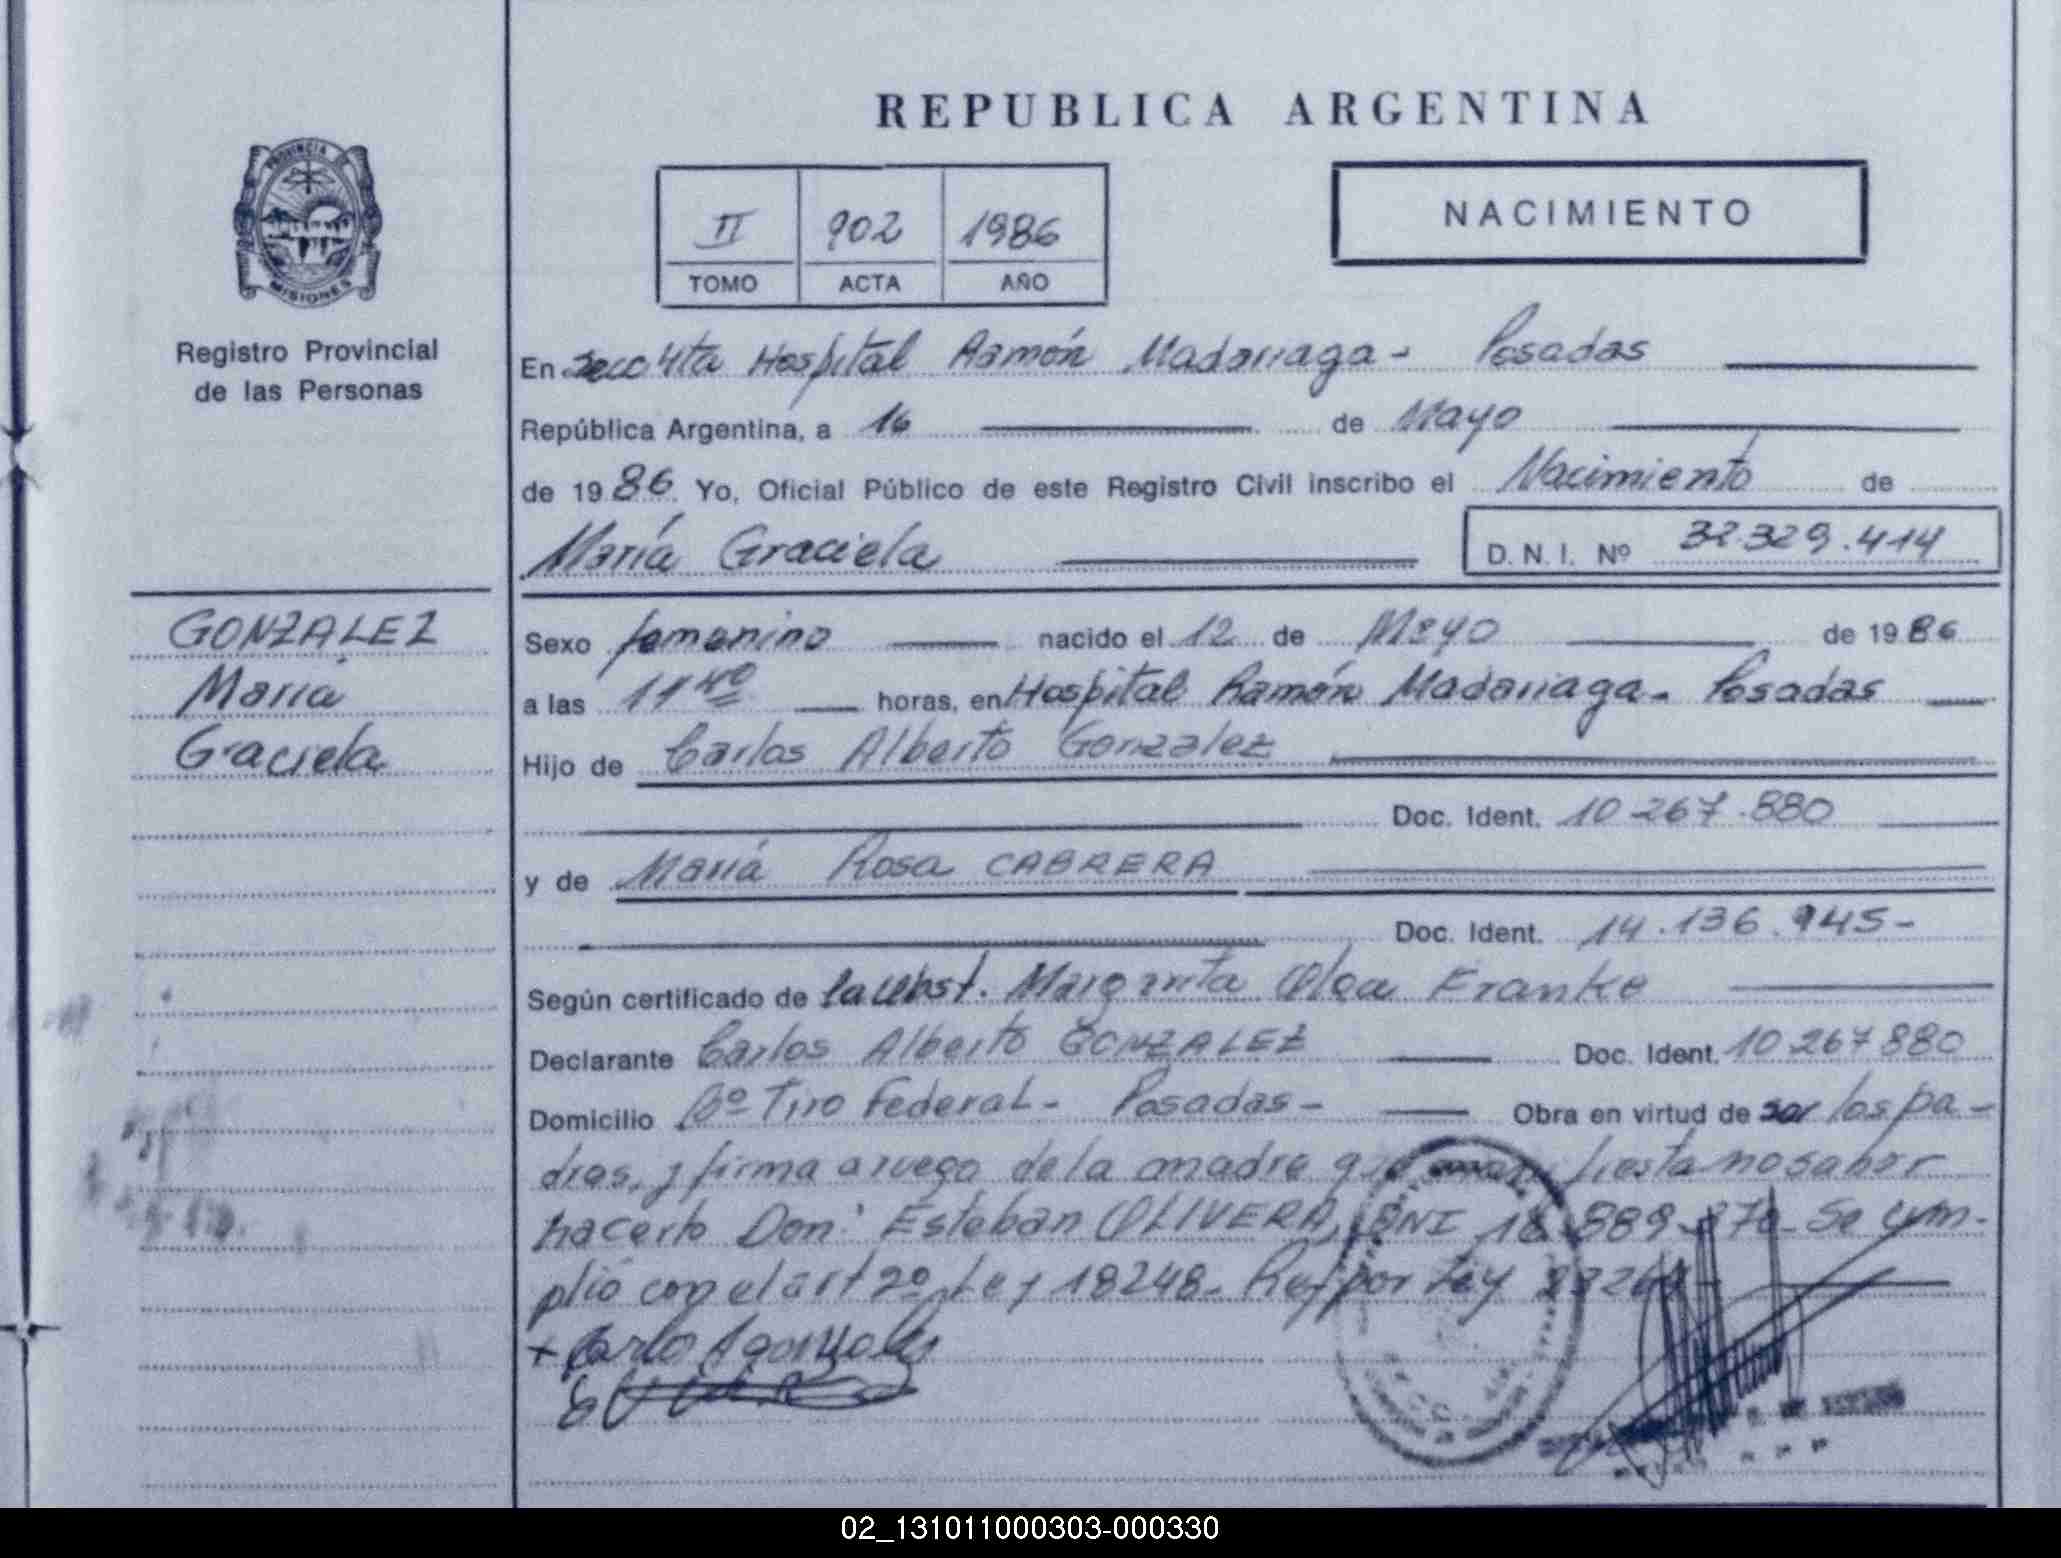 REPUBLICA ARGENTINA
PROVINCIA DE
MISIONES
Registro Provincial
de las Personas
II 902 1986
TOMO ACTA AÑO
NACIMIENTO
En Secc 4ta Hospital Ramón Madariaga - Posadas
República Argentina, a 16 de Mayo
de 1986. Yo, Oficial Público de este Registro Civil inscribo el Nacimiento de
María Graciela
D. N. I. Nº 32.329.414
GONZALEZ
María
Graciela
Sexo femenino nacido el 12 de Mayo de 1986
a las 11 40 horas, en Hospital Ramón Madariaga - Posadas
Hijo de Carlos Alberto Gonzalez
Doc. Ident. 10.267.880
y de María Rosa CABRERA
Doc. Ident. 14.136.945-
Según certificado de la Obst. Margarita Olga Franke
Declarante Carlos Alberto GONZALEZ Doc. Ident. 10.267.880
Domicilio Bº Tiro Federal - Posadas - Obra en virtud de ser los pa-
dres, y firma a ruego de la madre que manifiesta no saber
hacerlo Don: Esteban OLIVERA, DNI 18.889.370 - Se cum-
plió con el art 2º Ley 18248 - Ref por Ley
02_131011000303-000330